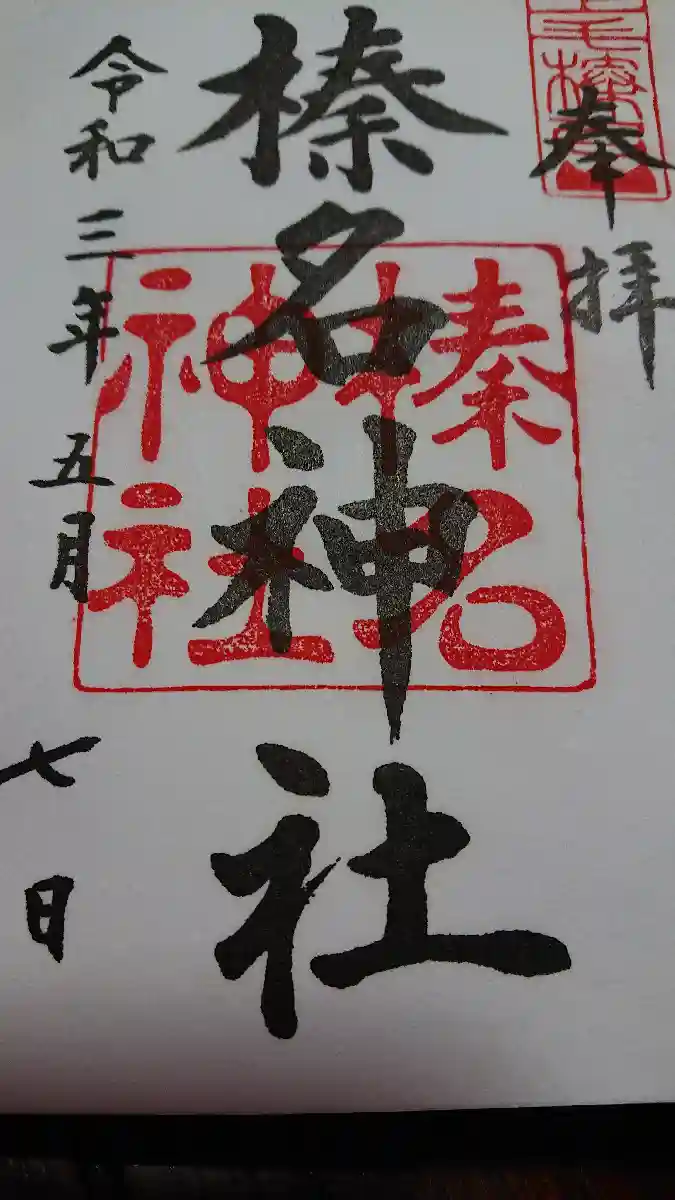 奉拝
榛名神社
榛名神社
令和三年五月七日